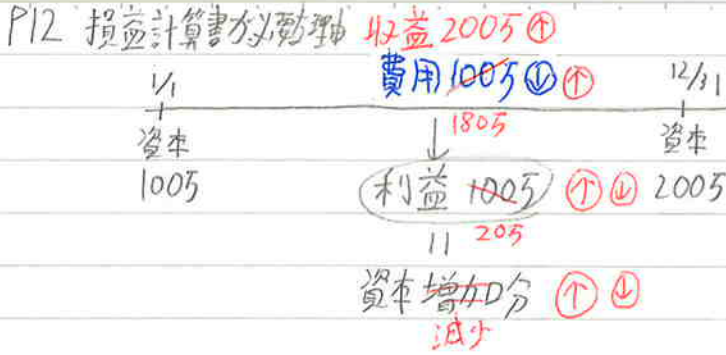 P12 損益計算書が必要な理由 収益200万↑
費用100万↓↑
1/1 12/31
180万
↓
資本 資本
100万 利益 100万 ↑↓ 200万
|| 20万
資本増加分 ↑↓
減少